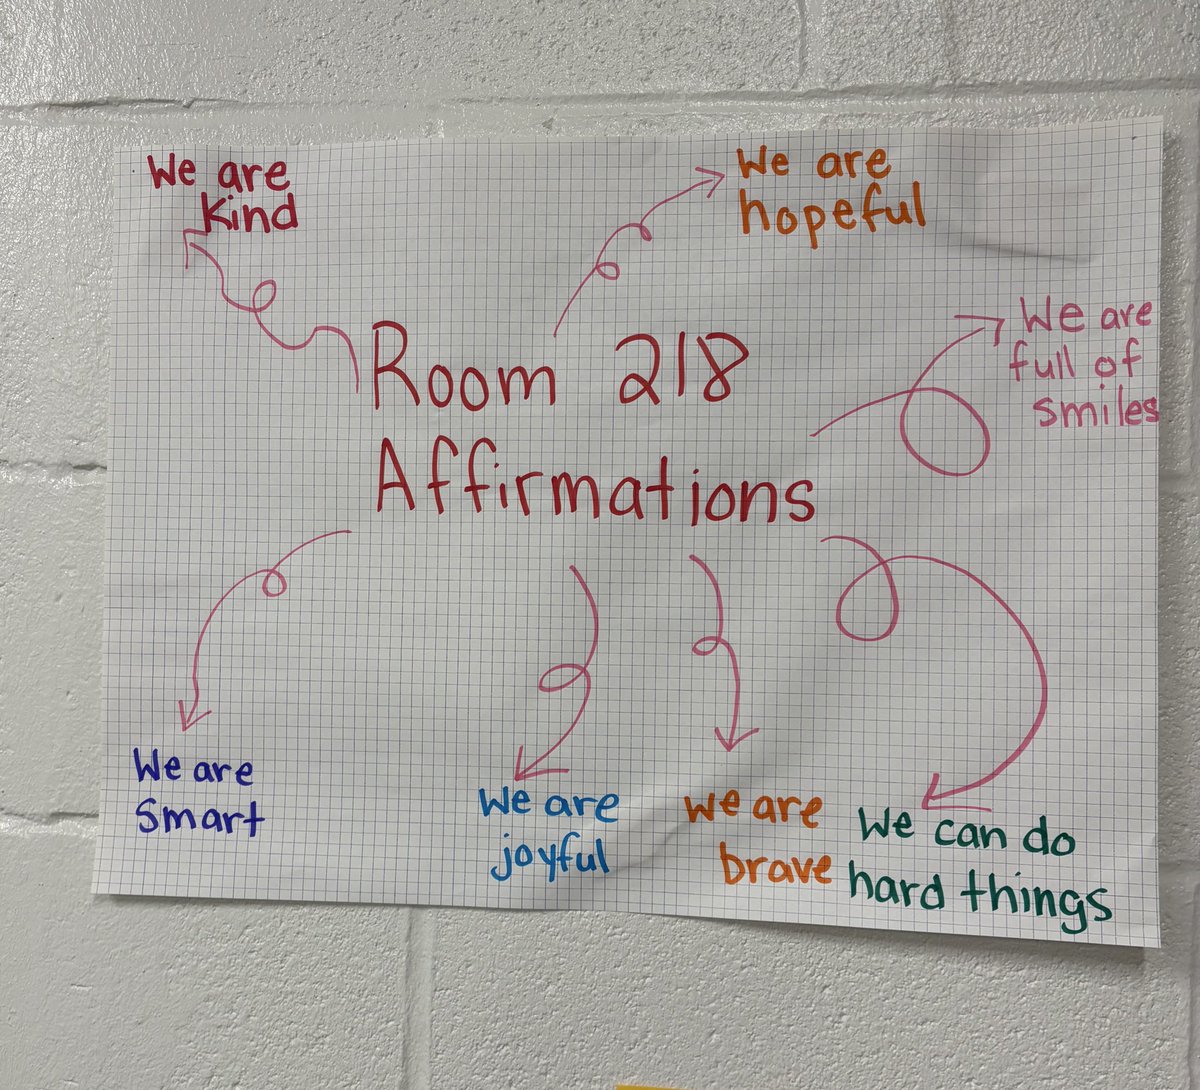 We are
Kind
We are
hopeful
We are
full of
smiles
Room 218
Affirmations
We are
Smart
We are
joyful
We are
brave
We can do
hard things